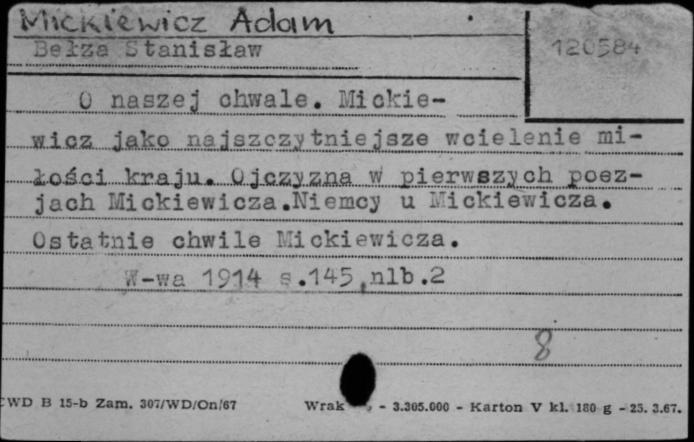 Mickiewicz Adam
Bełza Stanisław
120584
O naszej chwale. Mickie-
wicz jako najszczytniejsze wcielenie mi-
łości kraju. Ojczyzna w pierwszych poez-
jach Mickiewicza.Niemcy u Mickiewicza.
Ostatnie chwile Mickiewicza.
W-wa 1914 s.145,nlb.2
8
WD B 15-b Zam. 307/WD/On/67 Wrak - 3.305.000 - Karton V kl. 180 g - 25. 3.67.